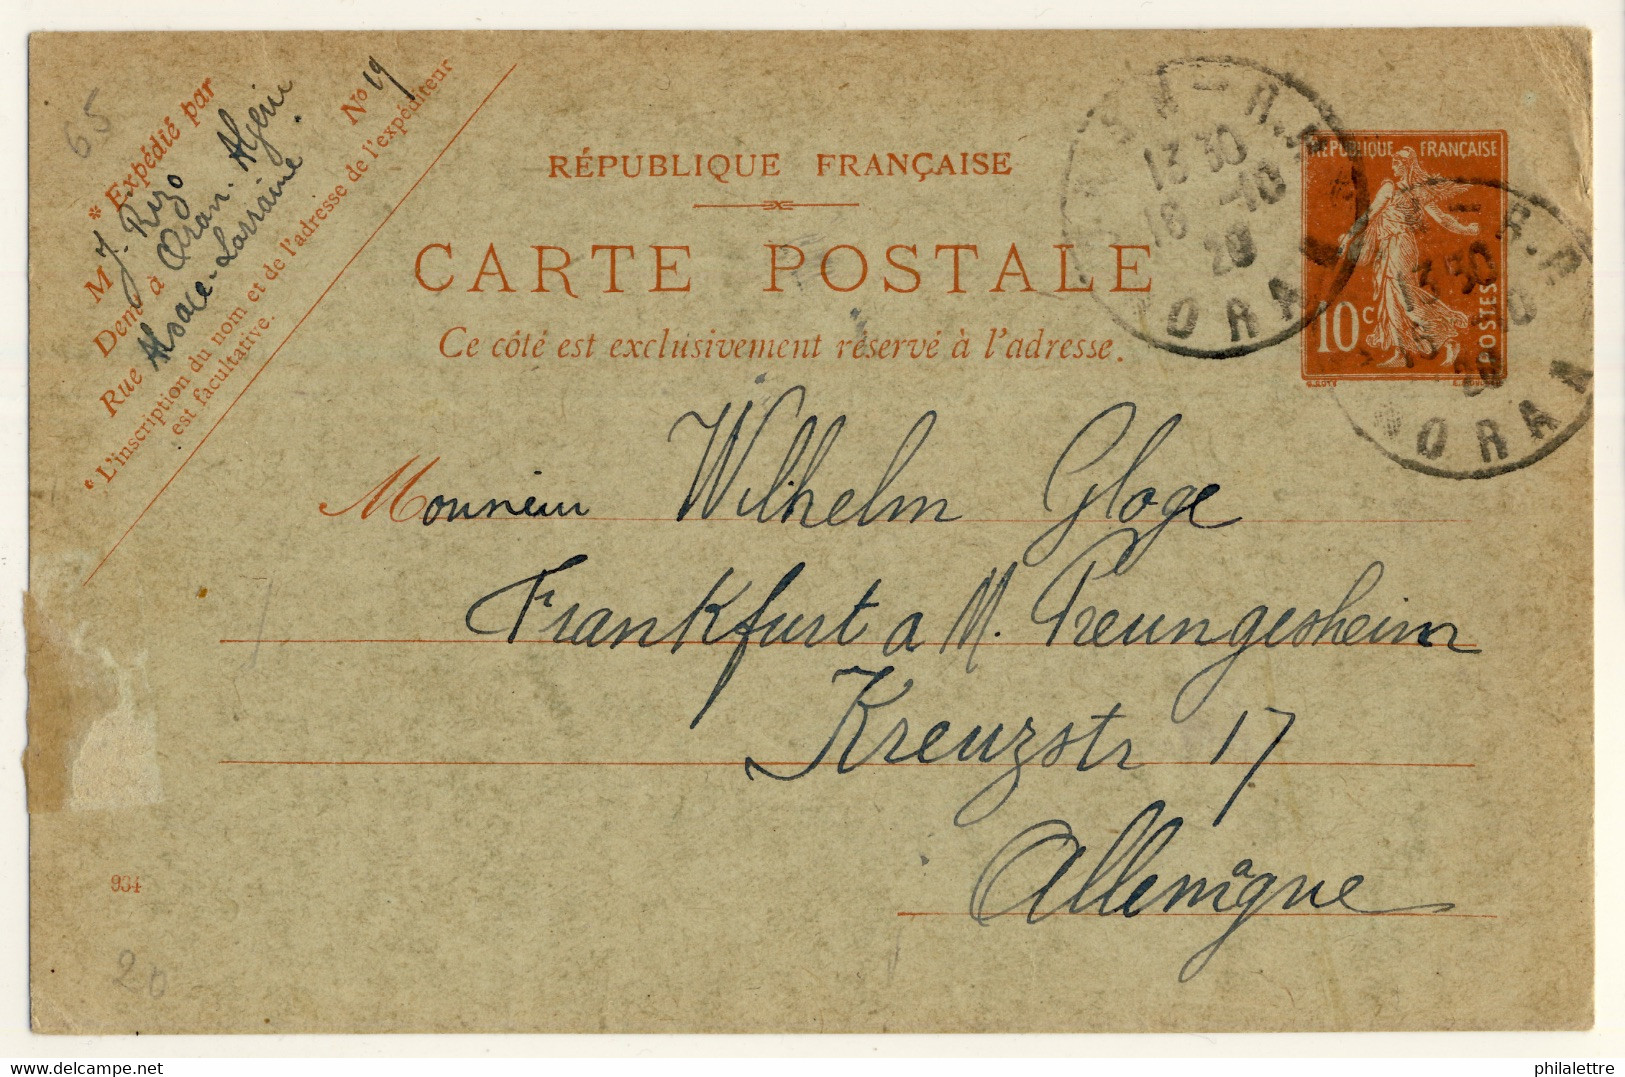 65
* Expédié par
M J. Rizo
Demt à Oran. Algérie
Rue Alsace-Lorraine No 19
* L'inscription du nom et de l'adresse de l'expéditeur
est facultative.
RÉPUBLIQUE FRANÇAISE
CARTE POSTALE
Ce côté est exclusivement réservé à l'adresse.
13 30
16 -10
20
ORAN
RÉPUBLIQUE FRANÇAISE
10c POSTES
13 30
-10
20
ORAN
Monsieur Wilhelm Gloge
Frankfurt a M. Preungesheim
Kreuzstr 17
Allemagne
934
20
philalettre